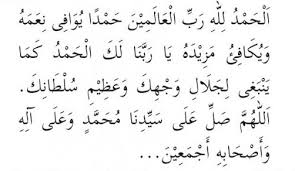 اَلْحَمْدُ لِلّٰهِ رَبِّ الْعَالَمِيْنَ حَمْدًا يُوَافِى نِعَمَهُ
وَيُكَافِئُ مَزِيْدَهُ يَا رَبَّنَا لَكَ الْحَمْدُ كَمَا
يَنْبَغِى لِجَلَالِ وَجْهِكَ وَعَظِيْمِ سُلْطَانِكَ.
اَللّٰهُمَّ صَلِّ عَلَى سَيِّدِنَا مُحَمَّدٍ وَعَلَى آلِهِ
وَأَصْحَابِهِ أَجْمَعِيْنَ...